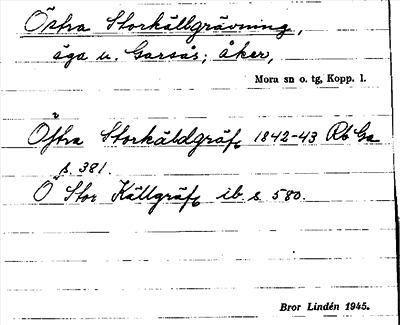 Östra Storkällgrävning,
äga u. Garsås; åker,
Mora sn o. tg, Kopp. l.
Östra Storkäldgräf, 1842-43 Rb Ga
s. 381.
Ö Stor Källgräf, ib. s 580.
Bror Lindén 1945.